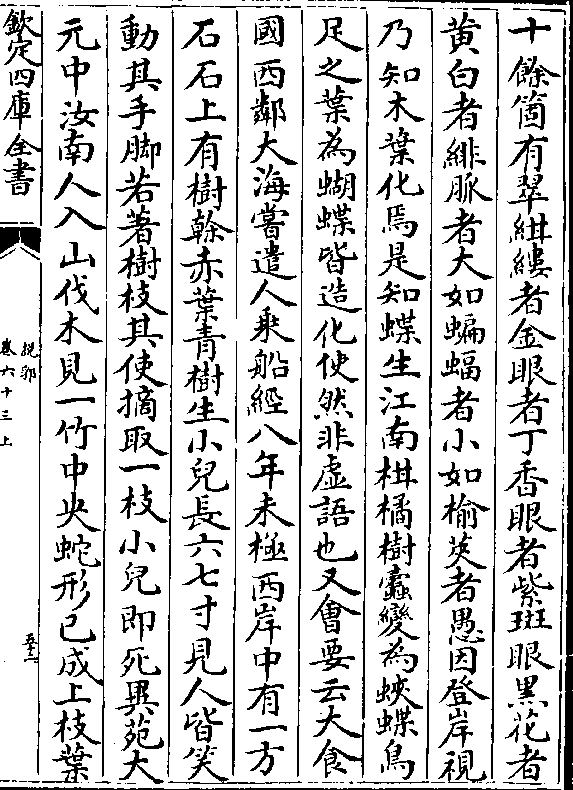 十餘箇有翠緝縷者金眼者丁香眼者紫斑眼黑花者
黄白者緋脈者大如蝙蝠者小如榆莢者愚因登岸視
乃知木葉化焉是知蝶生江南柑橘樹蠧變為蛺蝶鳥
足之葉為蝴蝶皆造化使然非虛語也又會要云大食
國西鄰大海嘗遣人乘船經八年未極西岸中有一方
石石上有樹榦赤葉青樹生小兒長六七寸見人皆笑
動其手脚若著樹枝其使摘取一枝小兒即死異苑大
元中汝南人入山伐木見一竹中央蛇形已成上枝葉
欽定四庫全書
說郛
卷六十三上